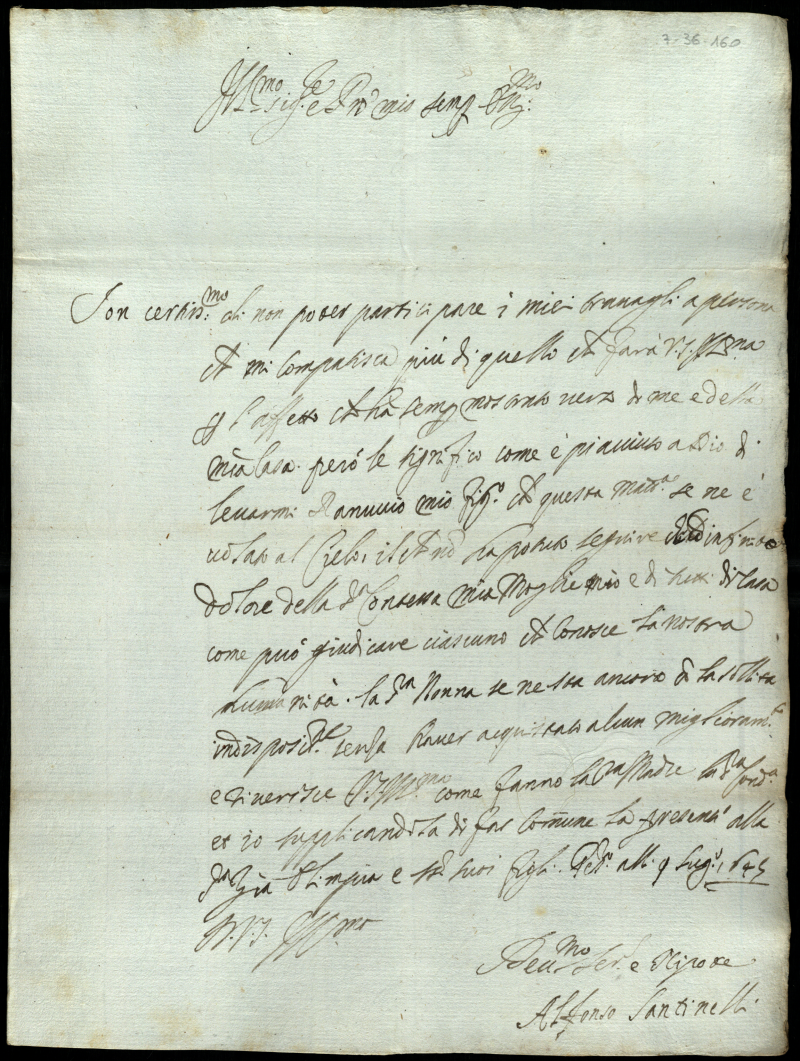 7-36-160
Ill.mo Sig.re e Pron mio semp Oss.mo
Son certiss.mo di non poter participare i miei travagli a persona
ch mi compatisca più di quello ch farà V.S. Ill.ma
p l'affetto ch ha semp mostrato verso di me e della
mia Casa. però le significo come è piaciuto a Dio di
levarmi Ranuccio mio figo. ch questa matt.a se ne è
volato al Cielo, il ch nō ha potuto seguire infinito
dolore della S.ra Contessa mia Moglie mio e di tutti di Casa
come può giudicare ciascuno ch conosce la nostra
humanità. la S.ra Nonna se ne sta ancora cō la sollita
indisposit.ne senza haver acquistato alcun miglioram.to
e riverisce V.S. Ill.ma come fanno la S.ra Madre la S.ra
et io supplicandola di far comune la presente alla
S.ra Zia Olimpia e suoi figli. alli 9 lug.o
D.V.S. Ill.ma
Dev.mo Ser.e e Nipote
Alfonso Santinelli